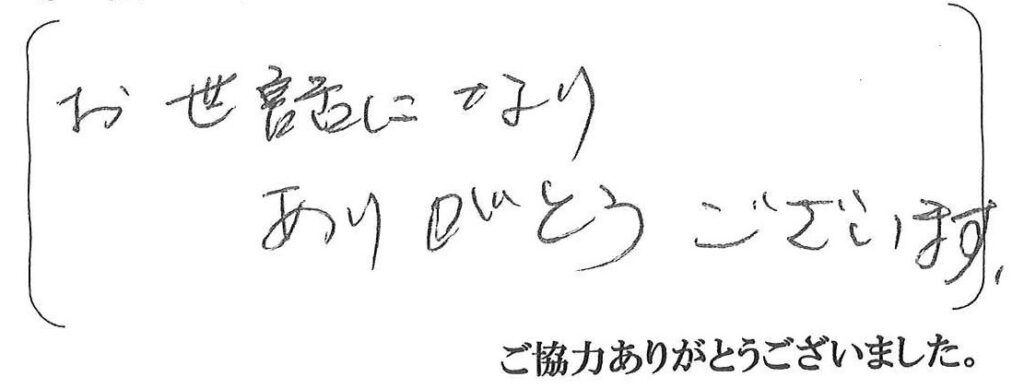 お世話になり
ありがとうございます。
ご協力ありがとうございました。